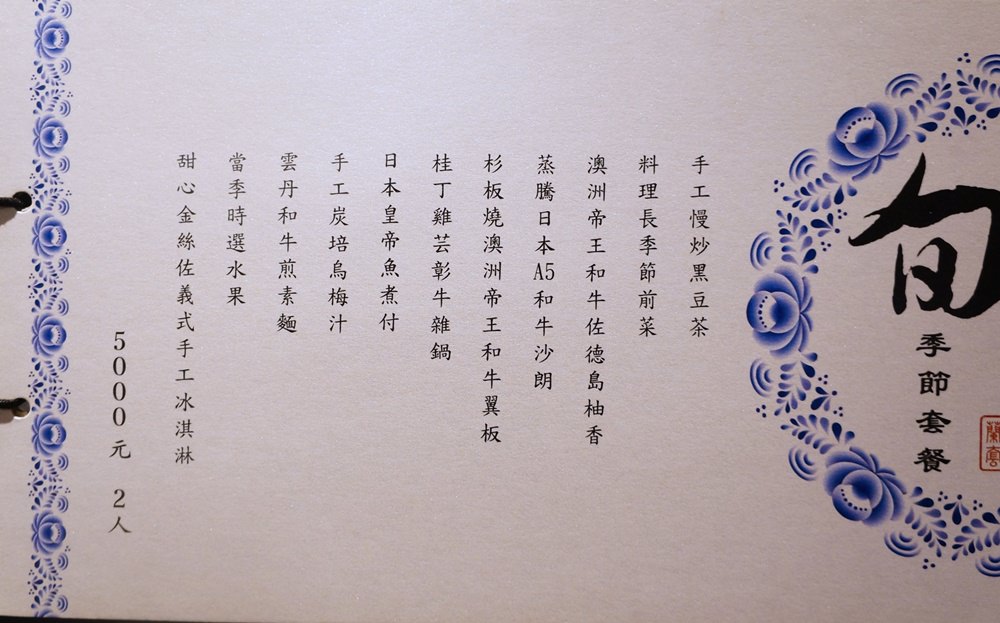 旬
季節套餐
手工慢炒黑豆茶
料理長季節前菜
澳洲帝王和牛佐德島柚香
蒸騰日本A5和牛沙朗
杉板燒澳洲帝王和牛翼板
桂丁雞芸彰牛雜鍋
日本皇帝魚煮付
手工炭培烏梅汁
雲丹和牛煎素麵
當季時選水果
甜心金絲佐義式手工冰淇淋
5000元 2人